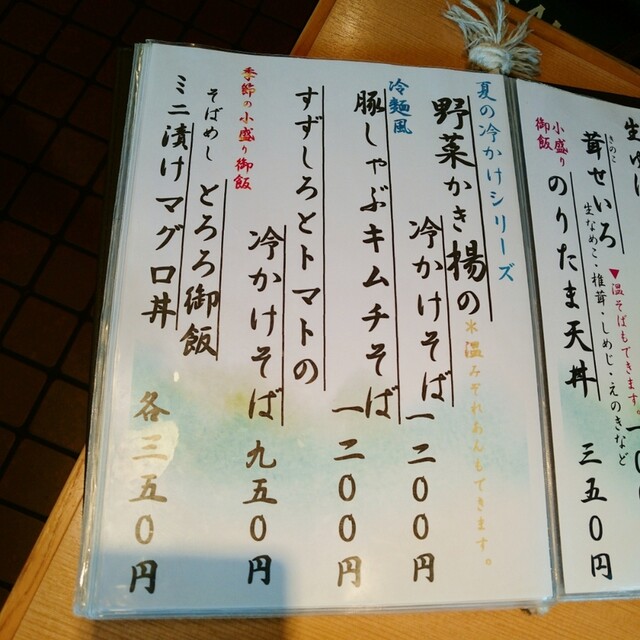 生
茸せいろ
きのこ
生なめこ・椎茸・しめじ・えのきなど
▼温そばもできます。
小盛り御飯
のりたま天丼 三五〇円
夏の冷かけシリーズ
野菜かき揚の
冷かけそば 一二〇〇円
※温みぞれあんもできます。
冷麺風
豚しゃぶキムチそば 一二〇〇円
すずしろとトマトの
冷かけそば 九五〇円
季節の小盛り御飯
そばめし とろろ御飯
ミニ漬けマグロ丼 各三五〇円